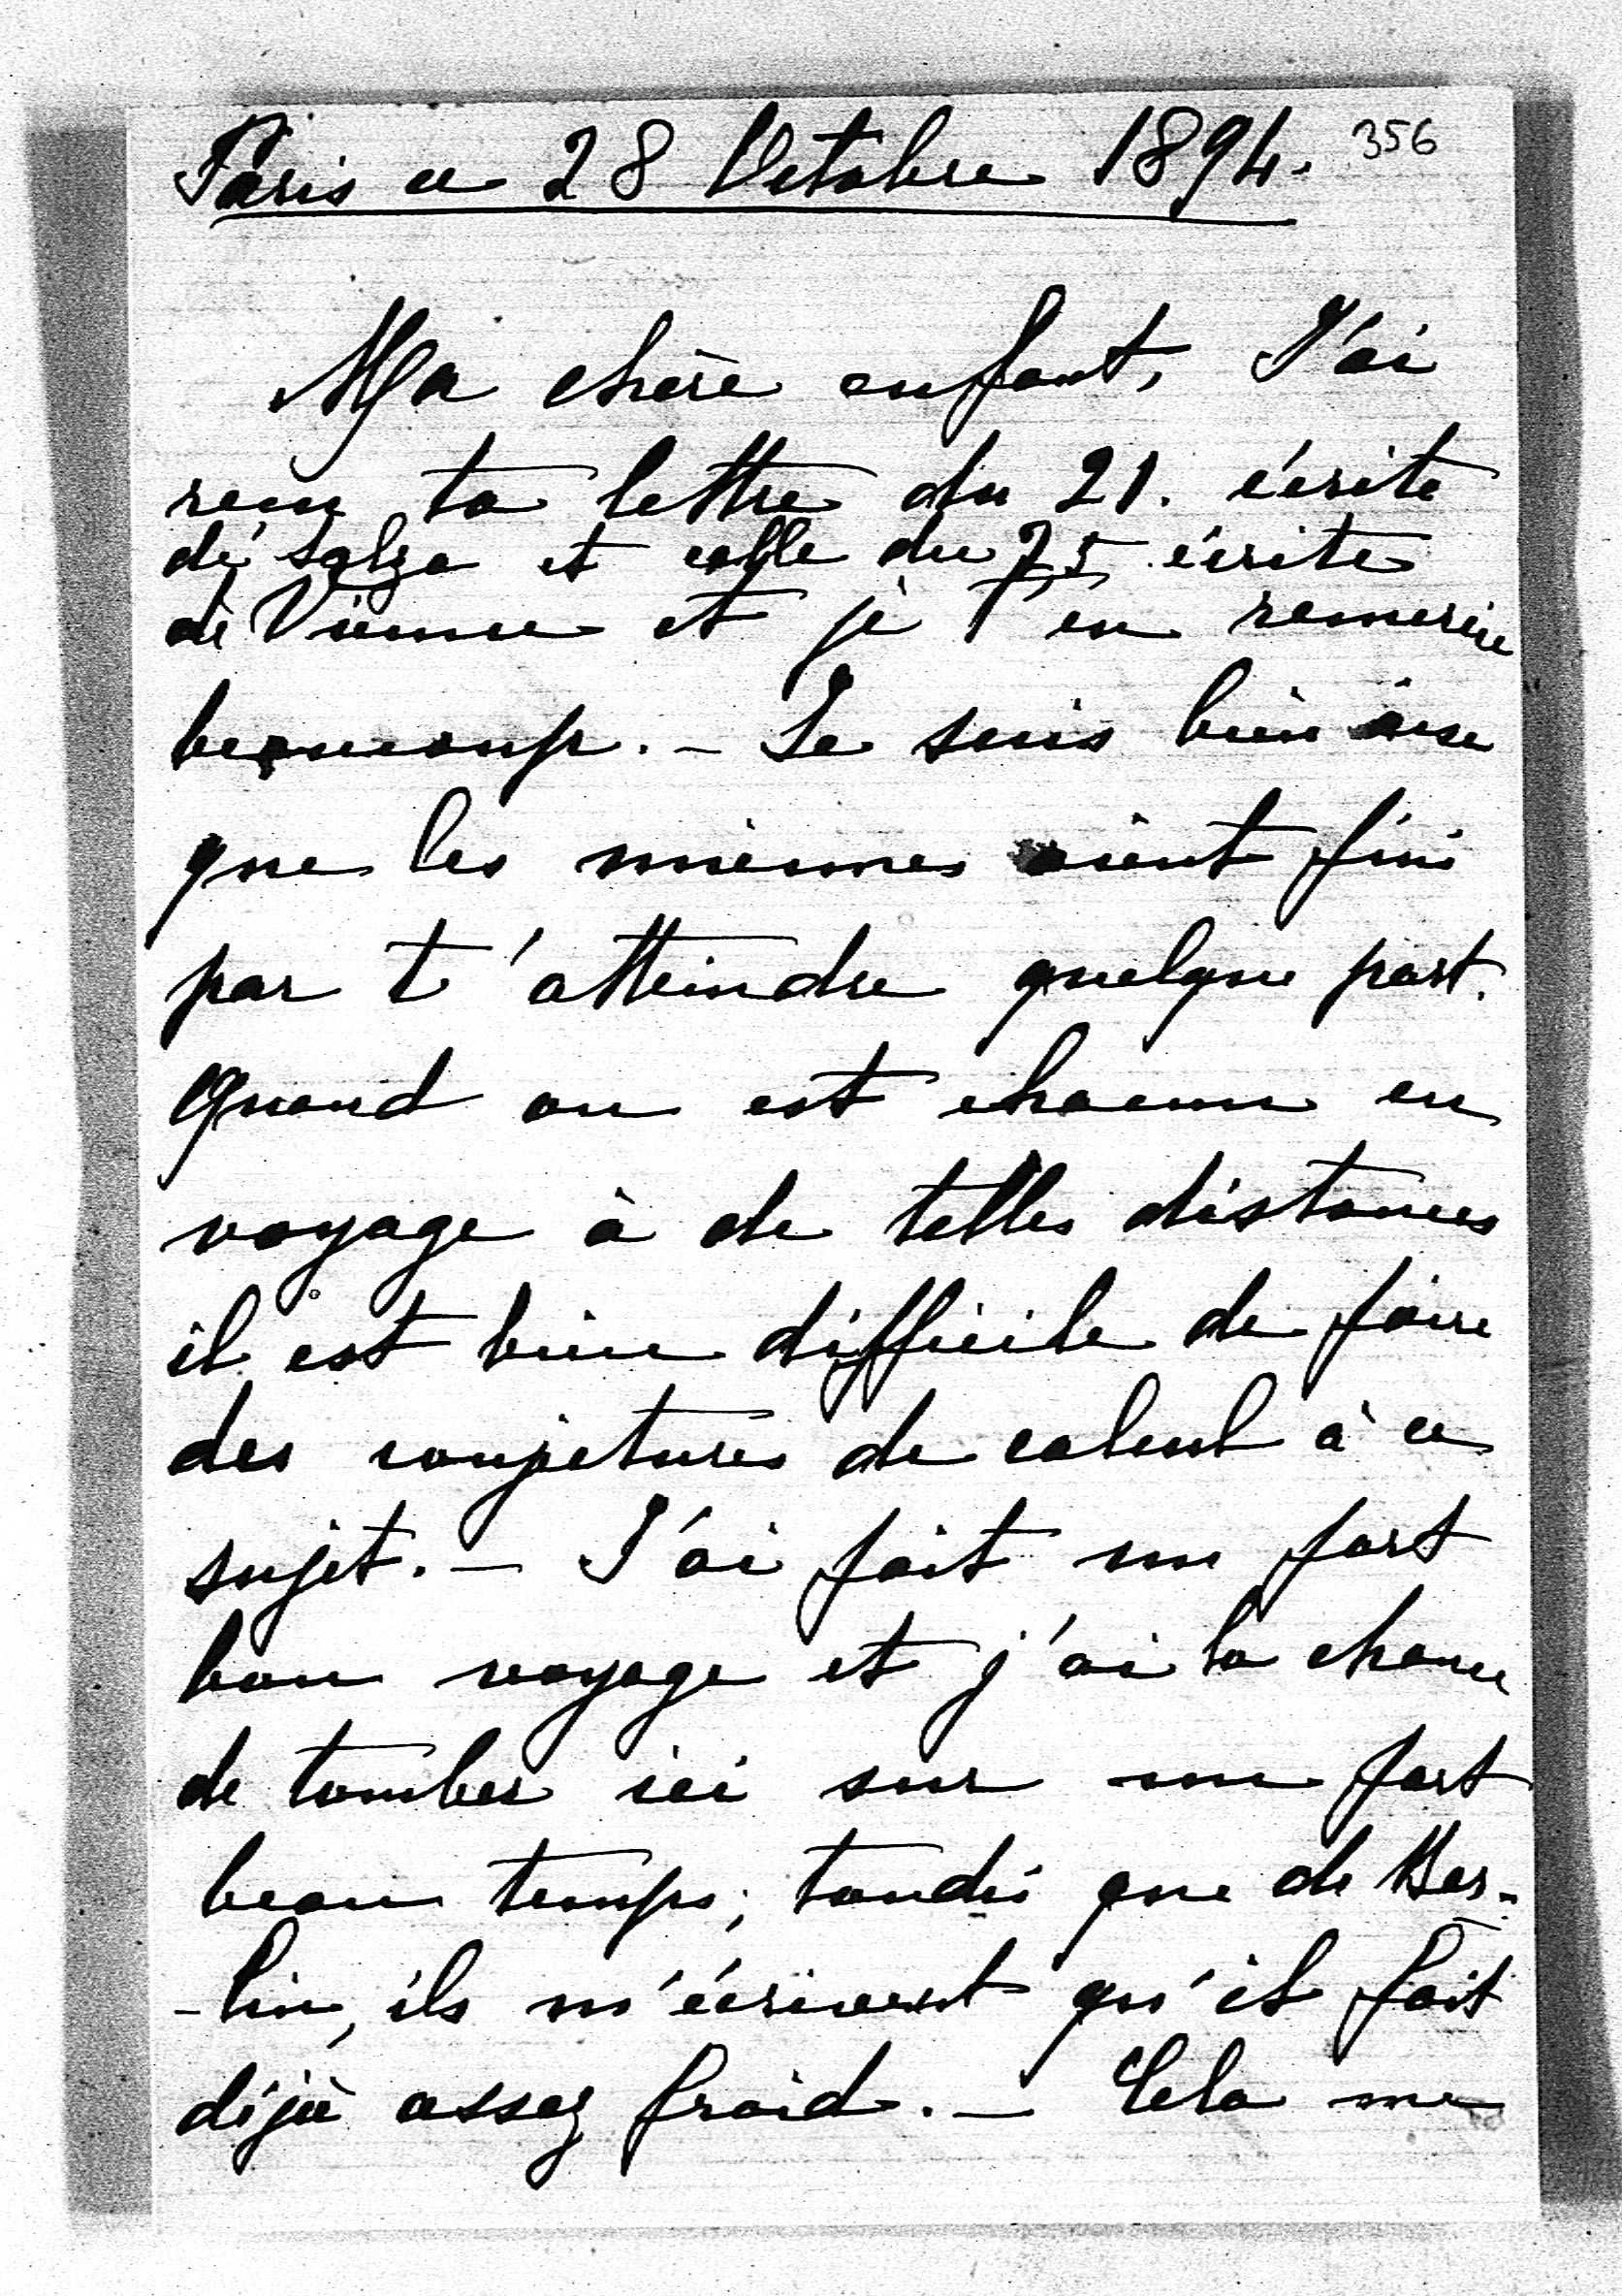 Paris ce 28 Octobre 1894. 356
Ma chère enfant, J'ai
reçu ta lettre du 21. écrite
de Salza et celle du 25 écrite
de Vienne et je t'en remercie
beaucoup. – Je suis bien aise
que les miennes aient fini
par t'atteindre quelque part.
Quand on est chacun en
voyage à de telles distances
il est bien difficile de faire
des conjetures de calcul à ce
sujet. – J'ai fait un fort
bon voyage et j'ai la chance
de tomber ici sur un fort
beau temps; tandis que de Ber-
-lin, ils m'écrivent qu'il fait
déjà assez froid. – Cela me